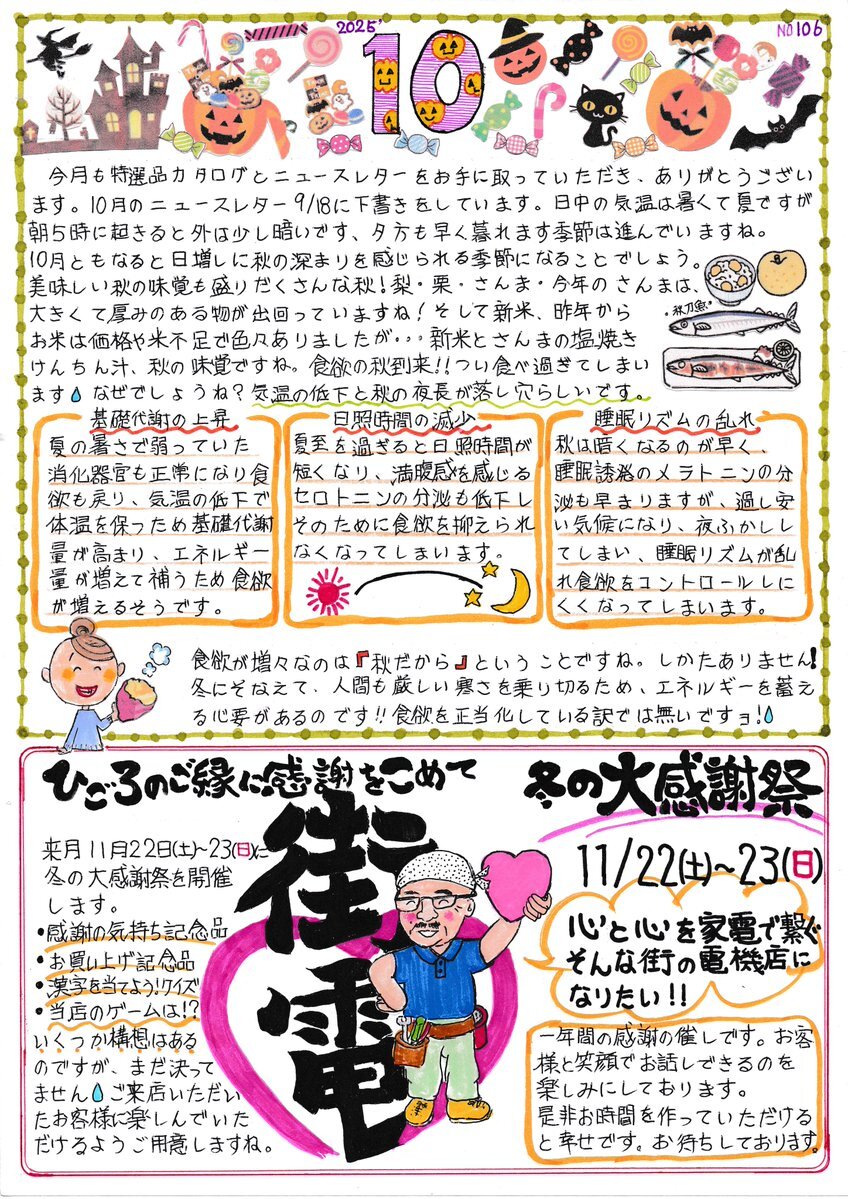 2025'
10
NO106
今月も特選品カタログとニュースレターをお手に取っていただき、ありがとうござい
ます。10月のニュースレター9/18に下書きをしています。日中の気温は暑くて夏ですが
朝5時に起きると外は少し暗いです、夕方も早く暮れます季節は進んでいますね。
10月ともなると日増しに秋の深まりを感じられる季節になることでしょう。
美味しい秋の味覚も盛りだくさんな秋!梨・栗・さんま・今年のさんまは、
大きくて厚みのある物が出回っていますね!そして新米、昨年から
お米は価格や米不足で色々ありましたが・・・新米とさんまの塩焼き
けんちん汁、秋の味覚ですね。食欲の秋到来!!つい食べ過ぎてしまい
ます なぜでしょうね?気温の低下と秋の夜長が落し穴らしいです。
"秋刀魚"
基礎代謝の上昇
夏の暑さで弱っていた
消化器官も正常になり食
欲も戻り、気温の低下で
体温を保っため基礎代謝
量が高まり、エネルギー
量が増えて補うため食欲
が増えるそうです。
日照時間の減少
夏至を過ぎると日照時間が
短くなり、満腹感を感じる
セロトニンの分泌も低下し
そのために食欲を抑えられ
なくなってしまいます。
睡眠リズムの乱れ
秋は暗くなるのが早く、
睡眠誘発のメラトニンの分
泌も早まりますが、過し安
い気候になり、夜ふかしし
てしまい、睡眠リズムが乱
れ食欲をコントロールしに
くくなってしまいます。
食欲が増々なのは『秋だから』ということですね。しかたありません!
冬にそなえて、人間も厳しい寒さを乗り切るため、エネルギーを蓄え
る必要があるのです!!食欲を正当化している訳では無いですョ!
ひごろのご縁に感謝をこめて
冬の大感謝祭
来月11月22日(土)~23(日)に
冬の大感謝祭を開催
します。
・感謝の気持ち記念品
・お買い上げ記念品
・漢字を当てよう!クイズ
・当店のゲームは!?
いくつか構想はある
のですが、まだ決って
ません ご来店いただい
たお客様に楽しんでいた
だけるようご用意しますね。
街電
11/22(土)~23(日)
心と心を家電で繋ぐ
そんな街の電機店に
なりたい!!
一年間の感謝の催しです。お客
様と笑顔でお話しできるのを
楽しみにしております。
是非お時間を作っていただける
と幸せです。お待ちしております。